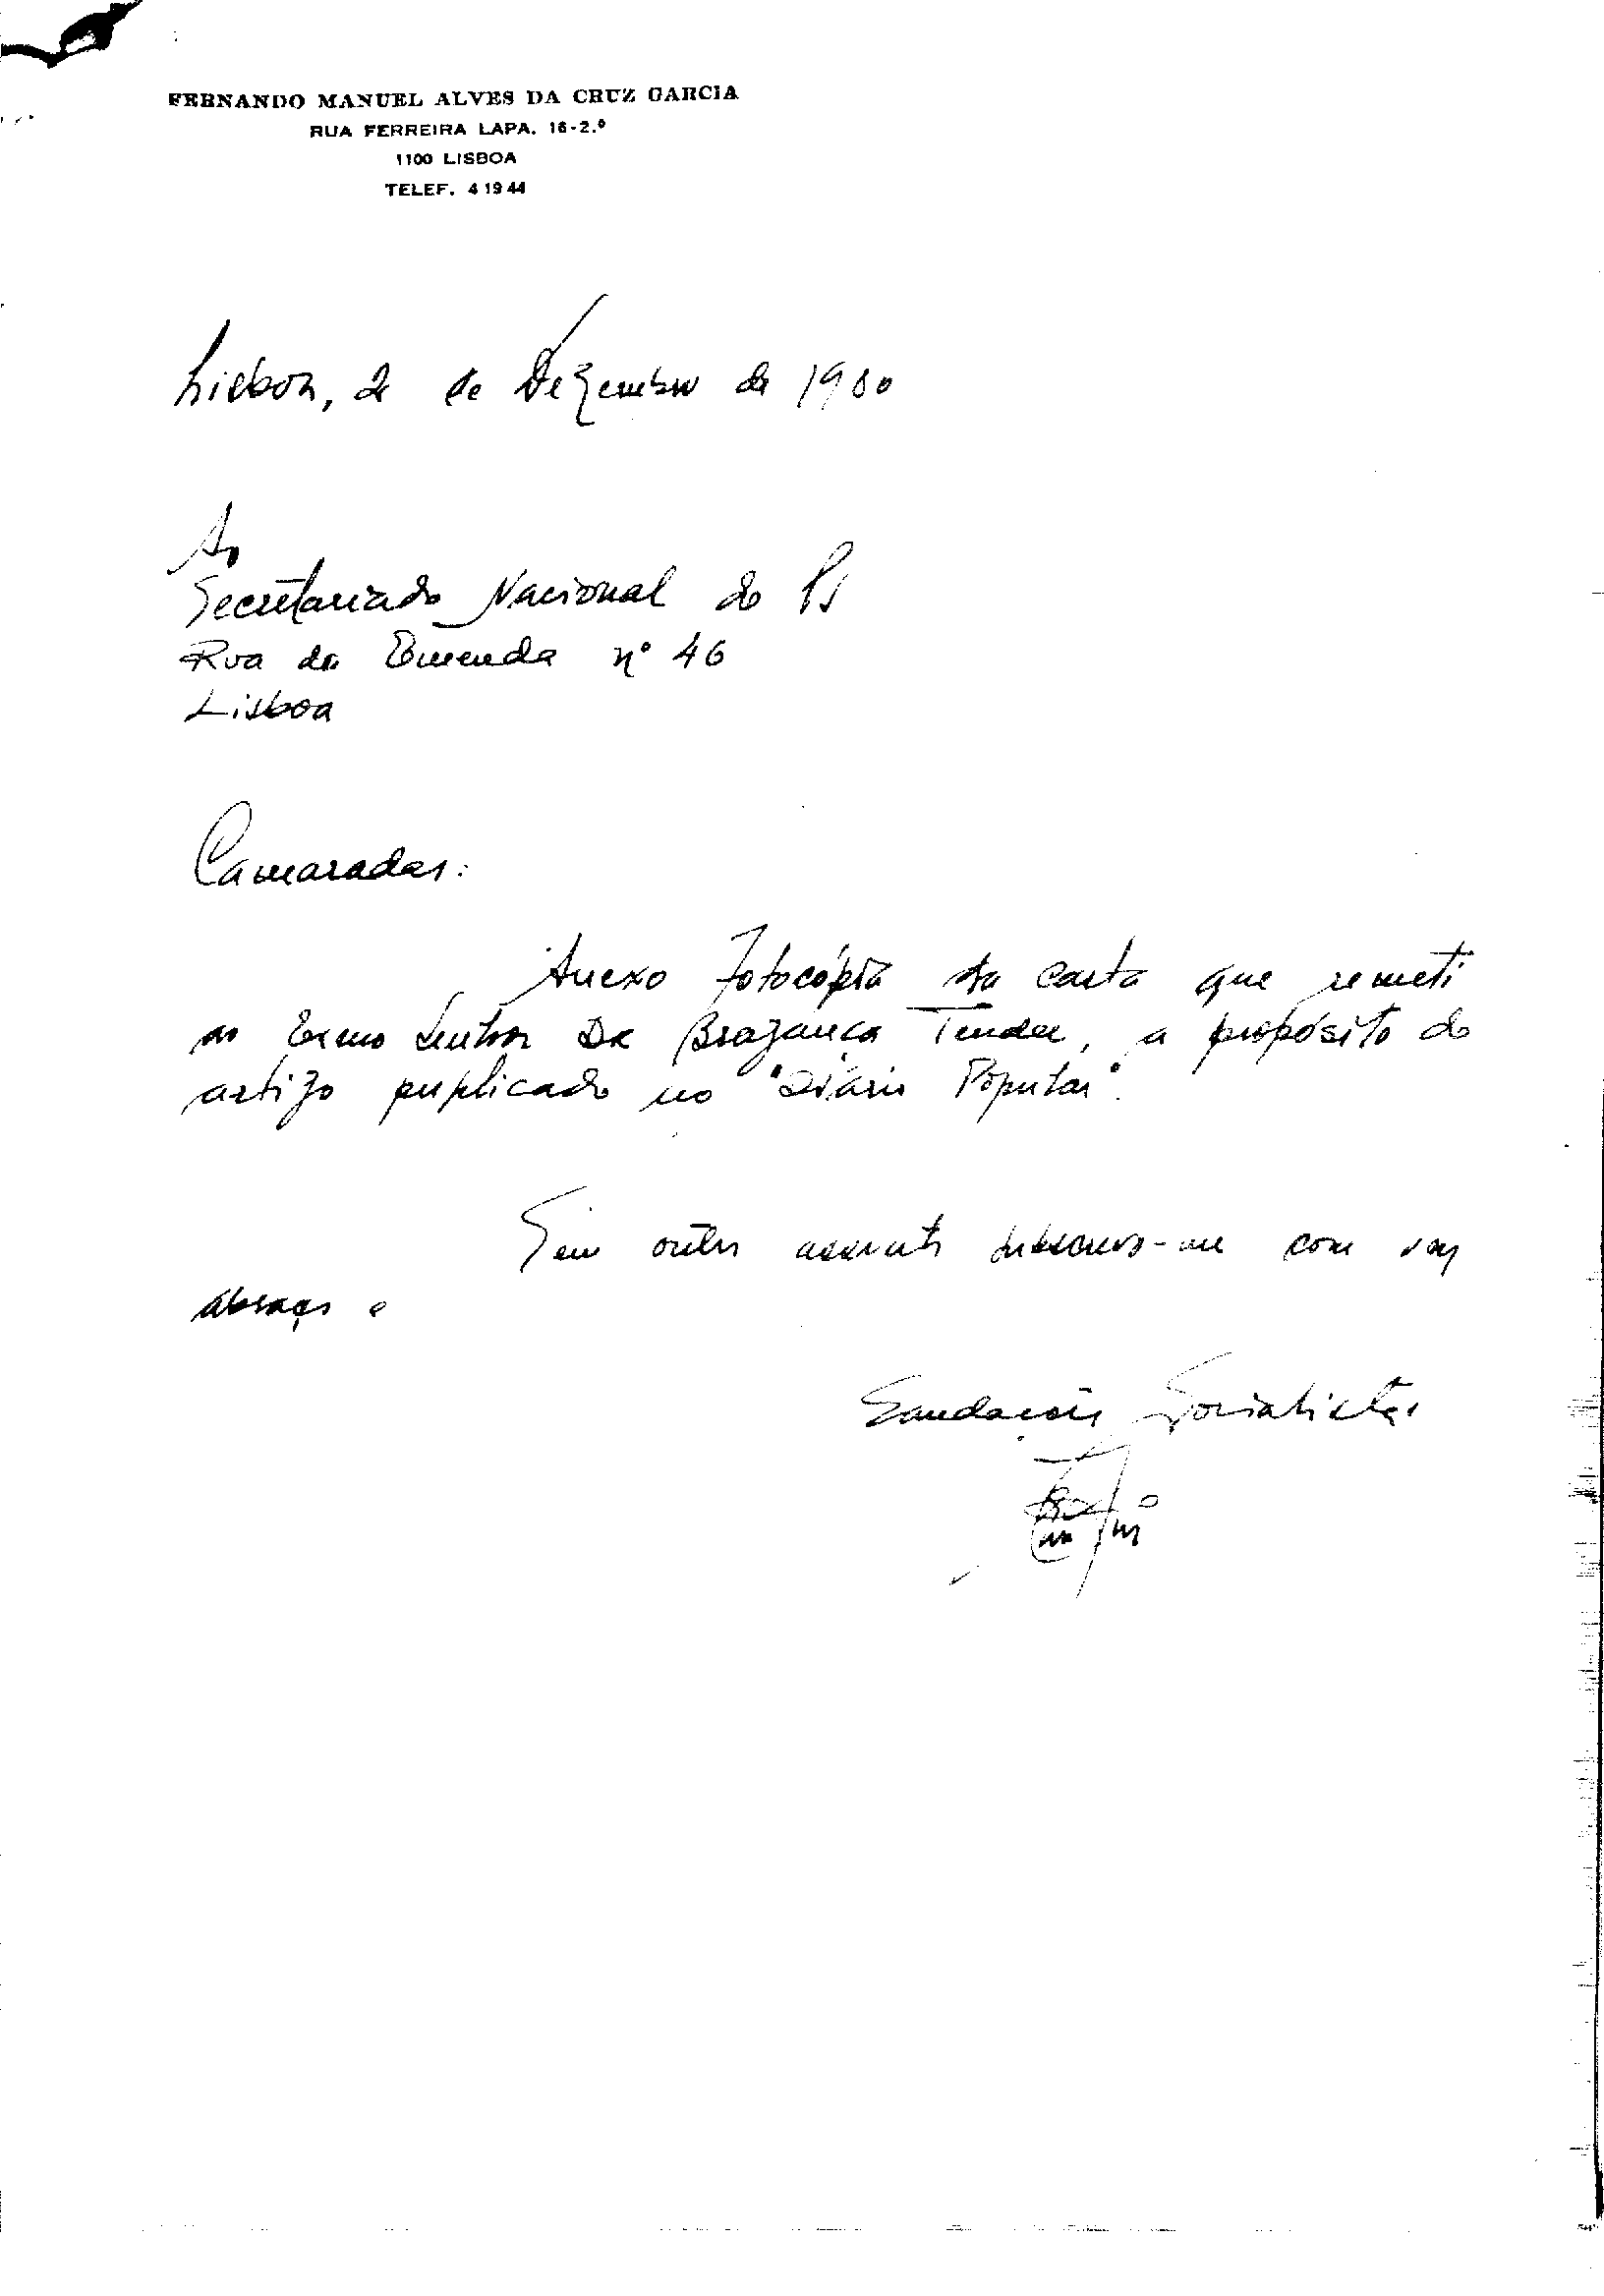 FERNANDO MANUEL ALVES DA CRUZ GARCIA
RUA FERREIRA LAPA, 16-2.º
1100 LISBOA
TELEF. 4 19 44
Lisboa, 2 de Dezembro de 1980
Ao
Secretariado Nacional do PS
Rua da Emenda nº 46
Lisboa
Camaradas:
Anexo fotocópia da carta que remeti
ao Exmo Senhor Dr Bragança Tender, a propósito do
artigo publicado no "Diário Popular".
Sem outro assunto subscrevo-me com um
abraço e
Saudações Socialistas